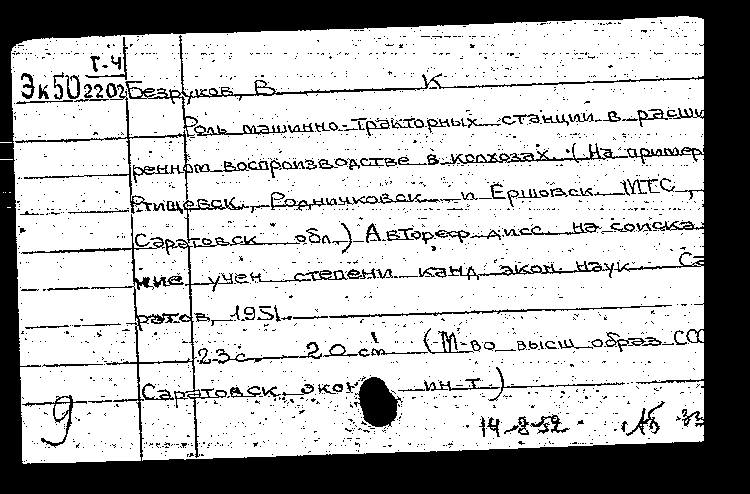 Г.Ч
Эк50 2202 Безруков, В. К
Роль машинно-тракторных станций в расши
ренном воспроизводстве в колхозах. (На пример
Ртищевск., Родничковск. и Ершовск МТС,
Саратовск обл.) Автореф. дисс. на соиска
ние учен степени канд экон. наук Са
ратов, 1951.
23 с. 20 см (М-во высш образ ССС
Саратовск. экон ин-т)
9
14-8-52